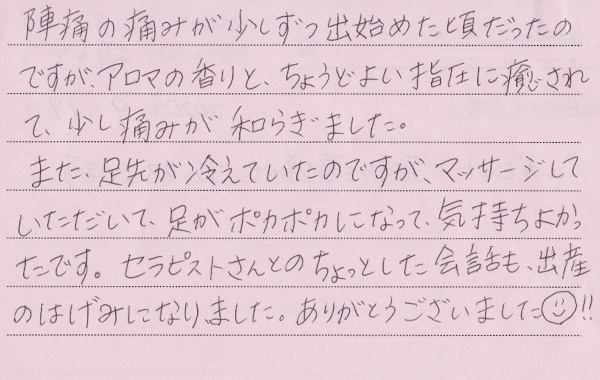 陣痛の痛みが少しずつ出始めた頃だったの
ですが、アロマの香りと、ちょうどよい指圧に癒され
て、少し痛みが和らぎました。
また、足先が冷えていたのですが、マッサージして
いただいて、足がポカポカになって、気持ちよかっ
たです。セラピストさんとのちょっとした会話も、出産
のはげみになりました。ありがとうございました☺!!